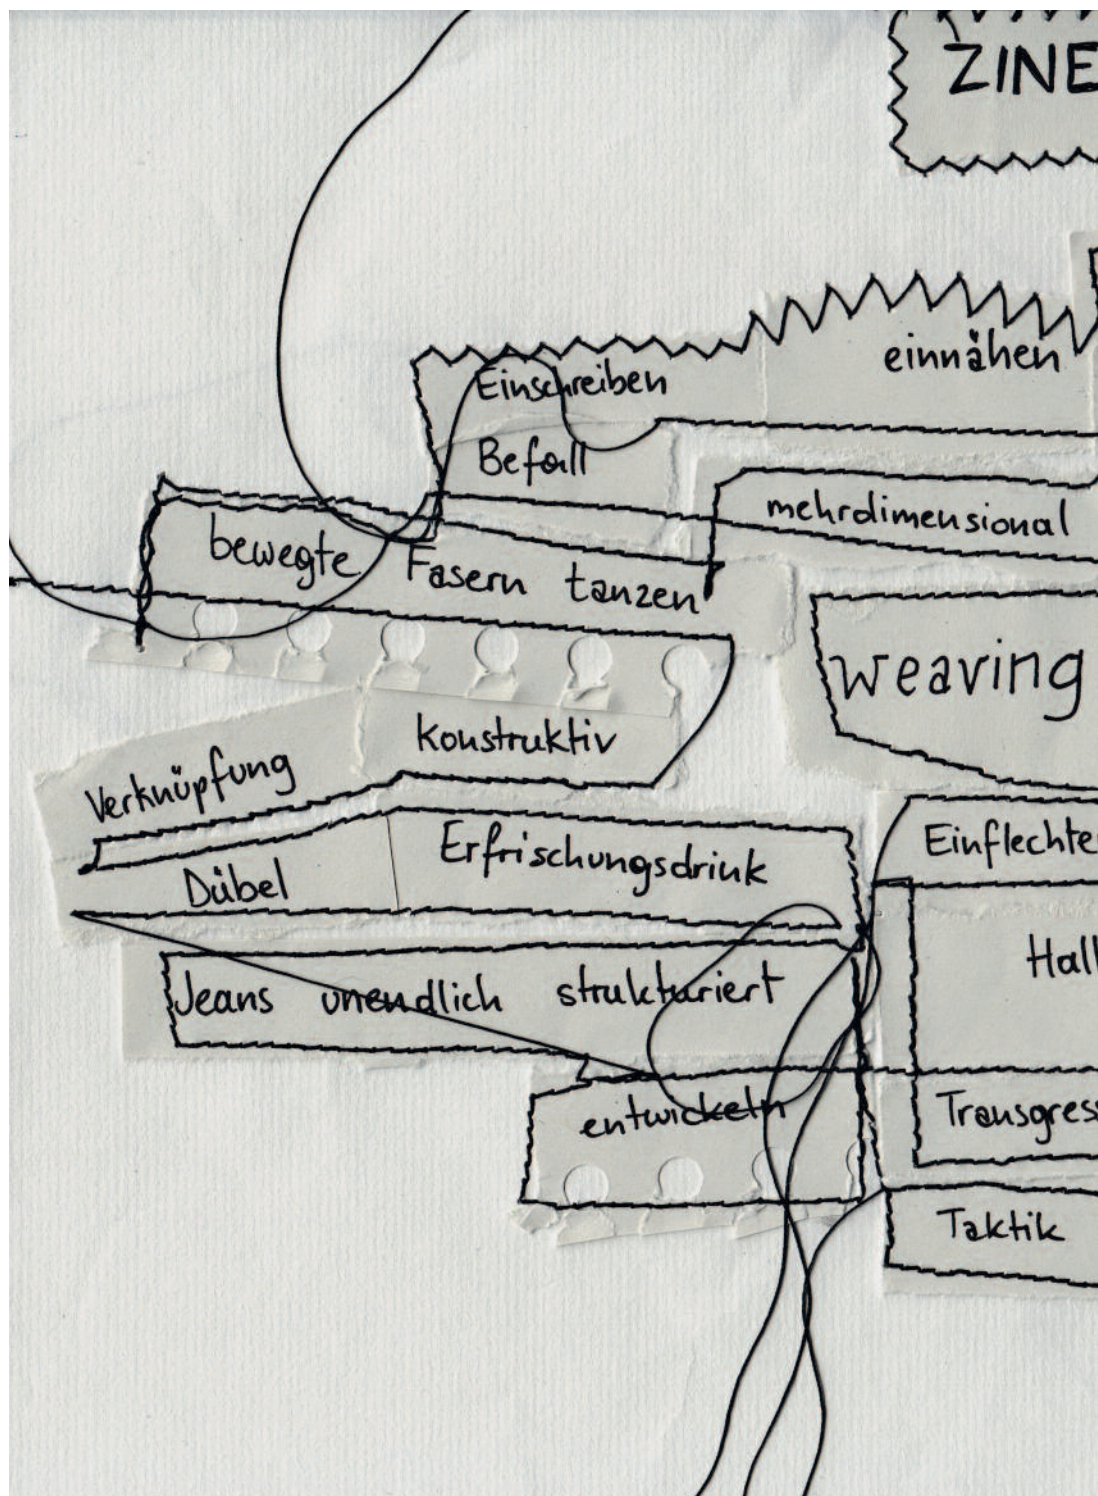 ZINE
einnähen
Einschreiben
Befall
mehrdimensional
bewegte Fasern tanzen
weaving
konstruktiv
Verknüpfung
Einflechte
Erfrischungsdrink
Dübel
Hall
Jeans unendlich strukturiert
entwickeln
Transgress
Taktik